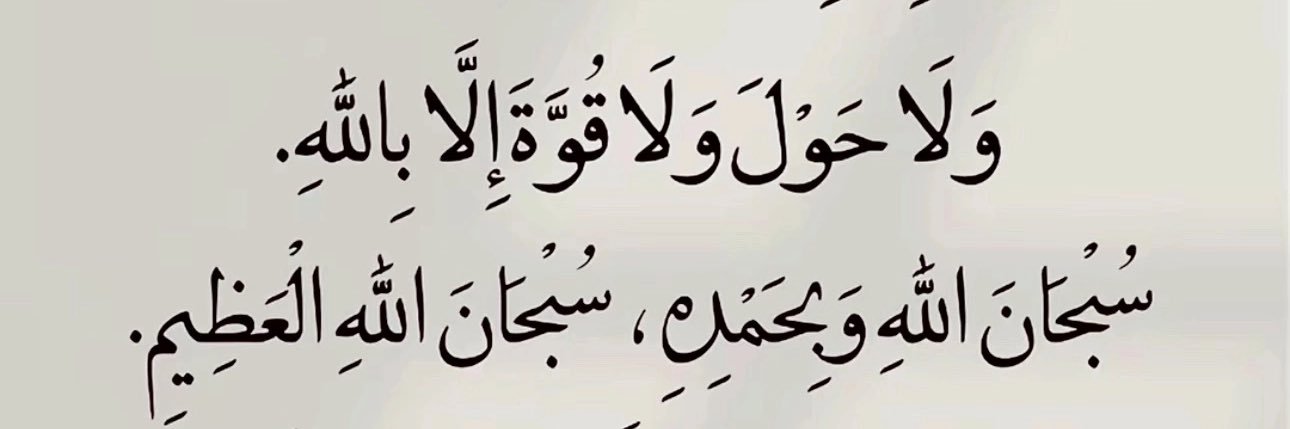 وَلَا حَوْلَ وَلَا قُوَّةَ إِلَّا بِاللّٰهِ.
سُبْحَانَ اللّٰهِ وَبِحَمْدِهِ، سُبْحَانَ اللّٰهِ الْعَظِيمِ.